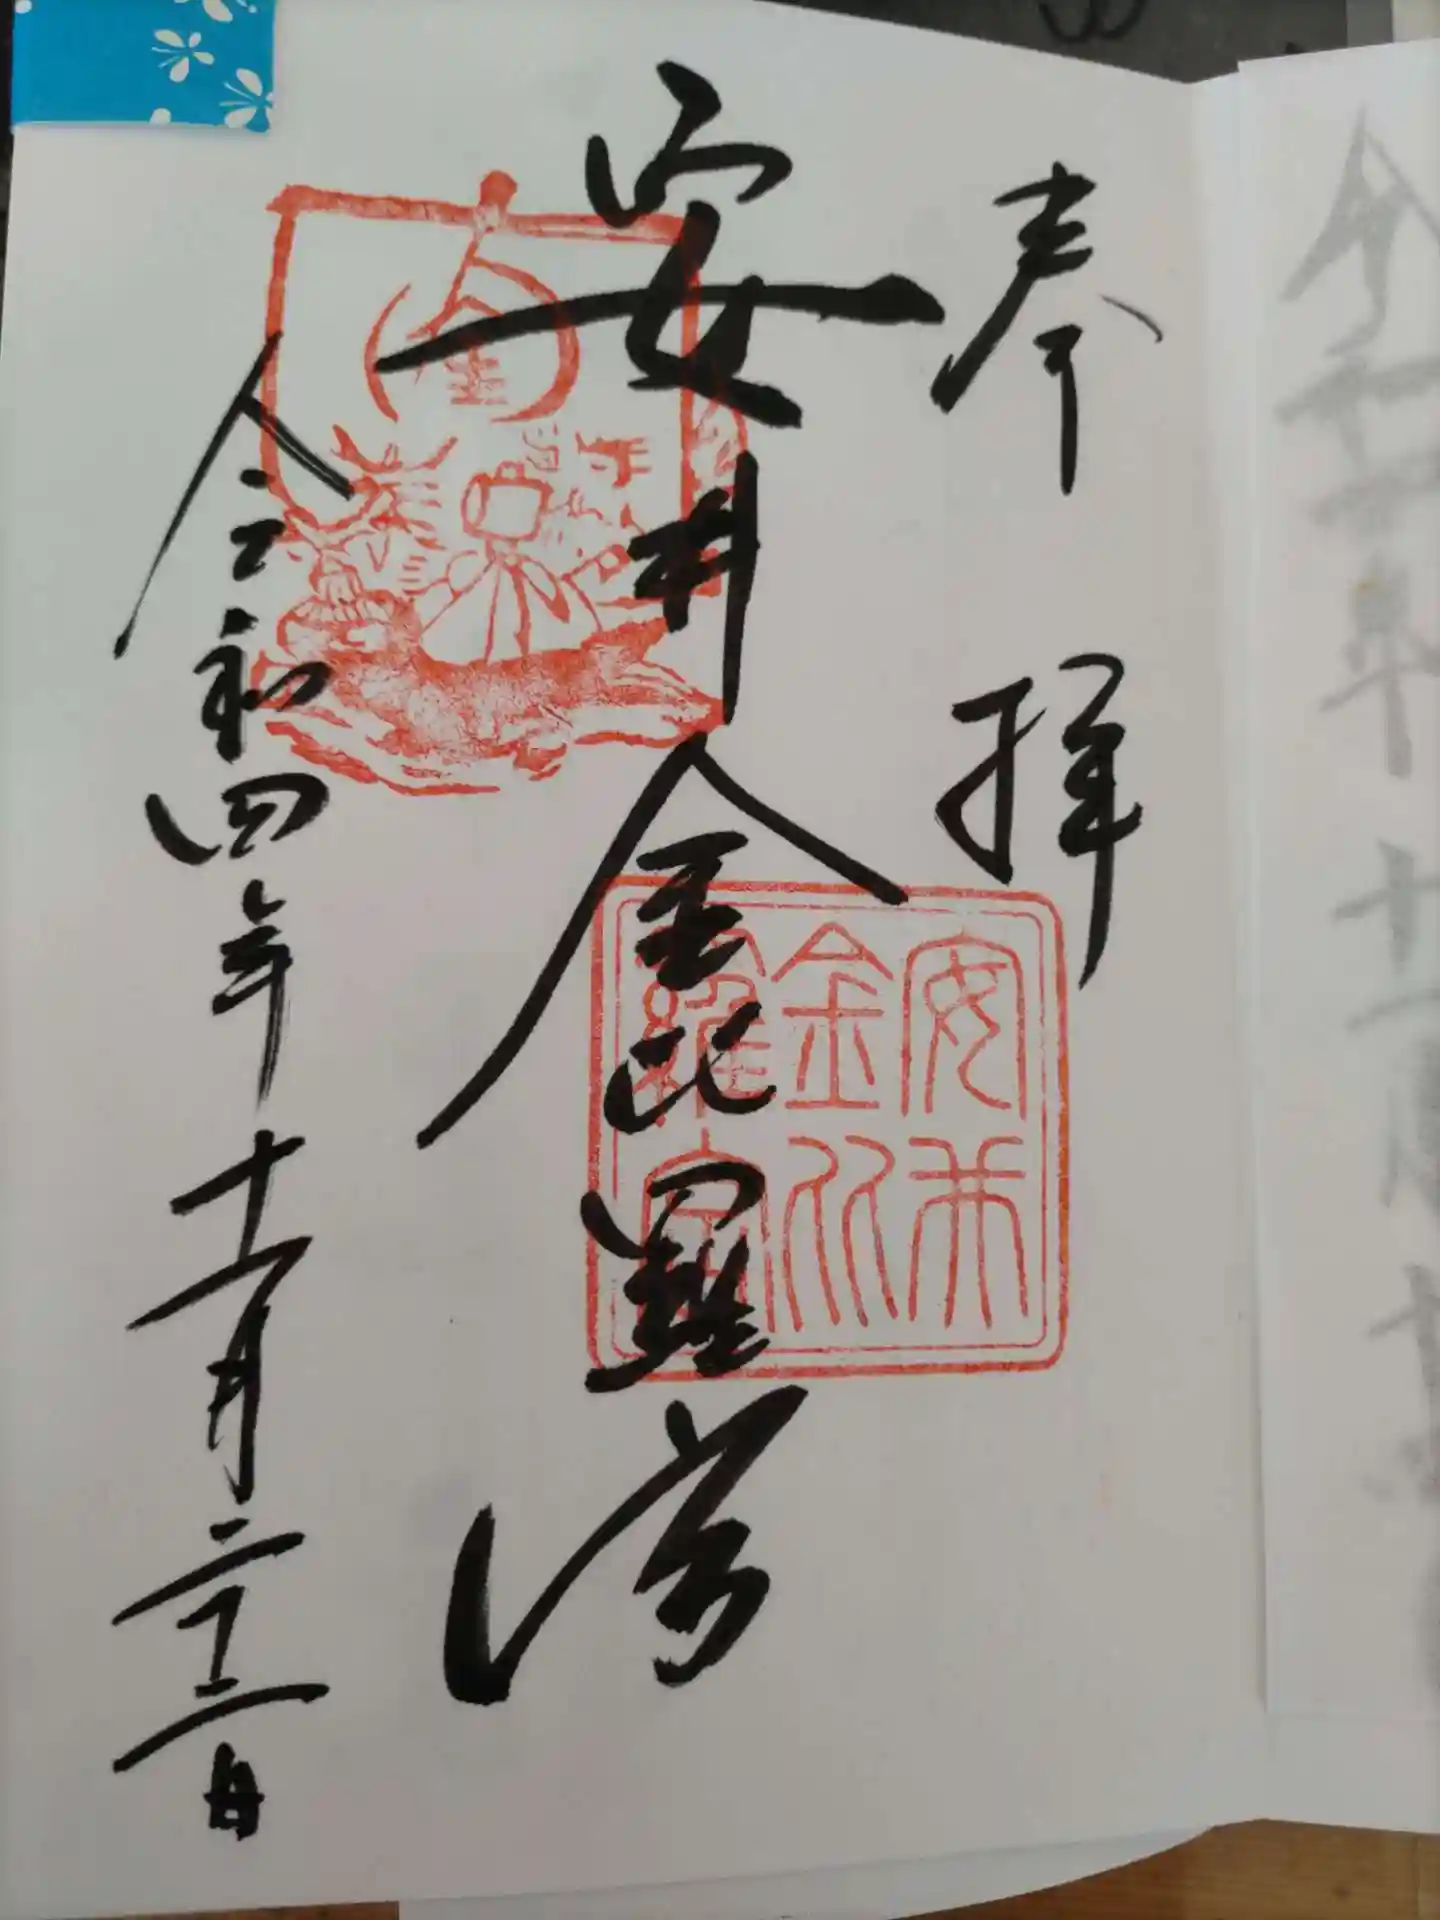 奉拝
安井金比羅宮
令和四年十一月二十三日
金
安井
金比
羅宮